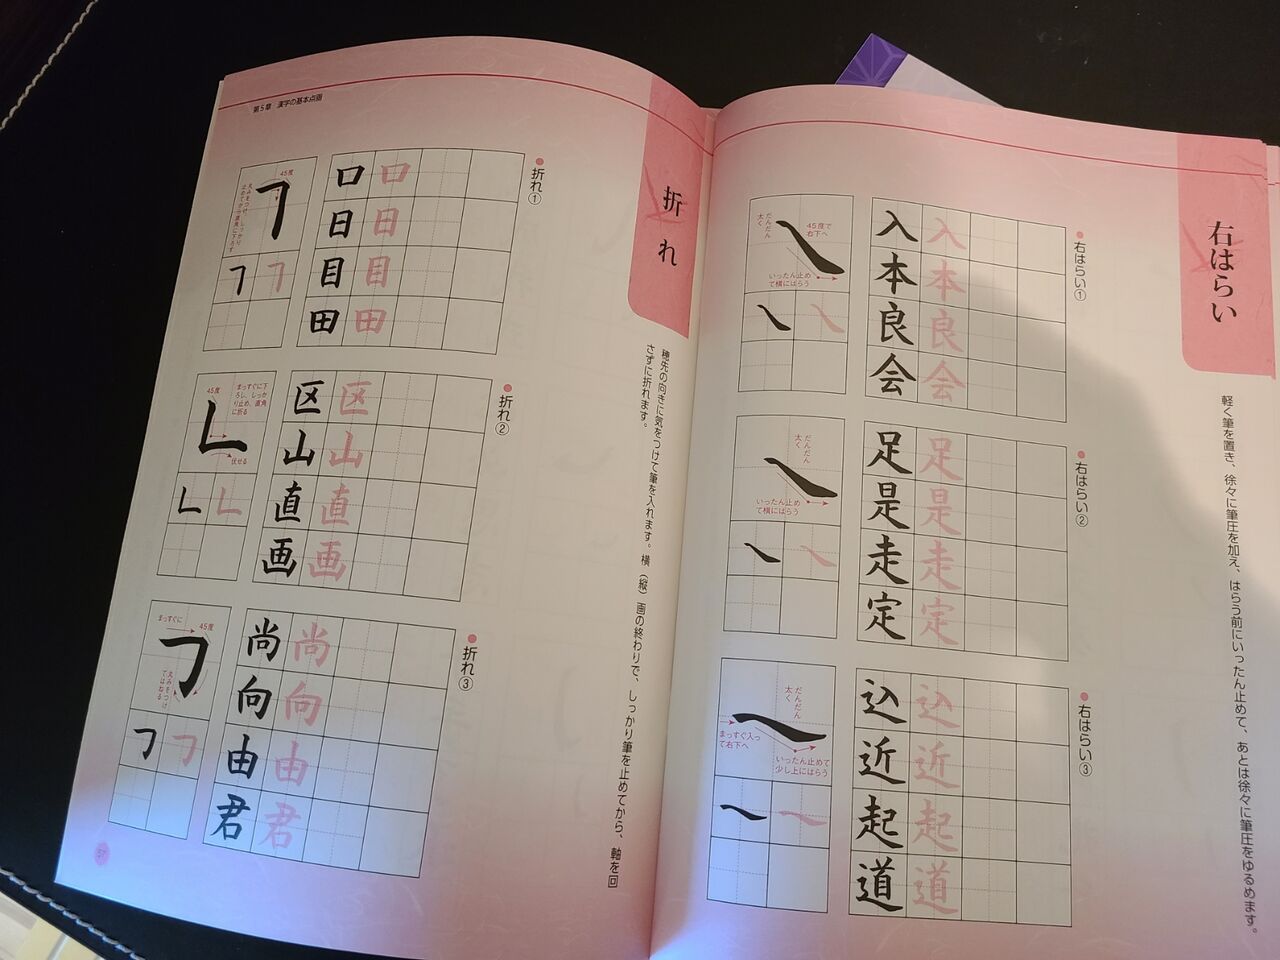 右はらい
軽く筆を置き、徐々に筆圧を加え、はらう前にいったん止めて、あとは徐々に筆圧をゆるめます。
右はらい①
入 入
本 本
良 良
会 会
だんだん太く
45度で右下へ
いったん止めて横にはらう
右はらい②
足 足
是 是
走 走
定 定
だんだん太く
いったん止めて横にはらう
右はらい③
込 込
近 近
起 起
道 道
だんだん太く
まっすぐ入って右下へ
いったん止めて少し上にはらう
第5章 漢字の基本点画
折れ
穂先の向きに気をつけて筆を入れます。横（縦）画の終わりで、しっかり筆を止めてから、軸を回
さずに折れます。
折れ①
口 口
日 日
目 目
田 田
45度
折れ②
区 区
山 山
直 直
画 画
45度
まっすぐに下ろし、しっかり止め、直角に折る
伏せる
折れ③
尚 尚
向 向
由 由
君 君
まっすぐに
45度
丸みをつけてはねる
57